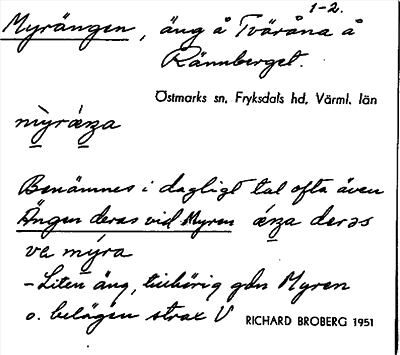 1-2.
Myrängen, äng å Tväråna å
Rännberget.
Östmarks sn, Fryksdals hd, Värml. län
Benämnes i dagligt tal ofta även
Ängen deras vid Myren
va mýra
- Liten äng, tillhörig gdn Myren
o. belägen strax V
RICHARD BROBERG 1951